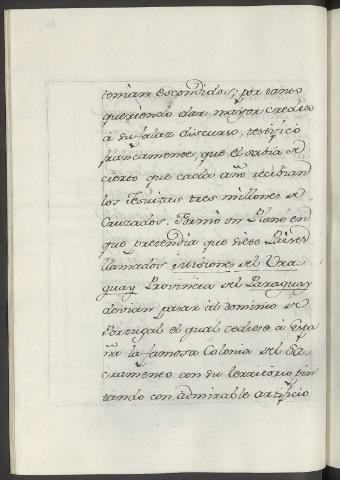 tenian escondidos; por tanto
queriendo dar mayor credito
à su falaz discurso, testificò
francamente, que èl sabia de
cierto que cada año recibian
los Jesuitas tres millones de
Cruzados. Formó un Plano en
que pretendia que siete Paises
llamados misiones del Ura
guay Provincia del Paraguay
devian pasar al dominio de
Portugal el qual cediese à Espa
ña la famosa Colonia del Sa
cramento con su territorio, pin
tando con admirable artificio